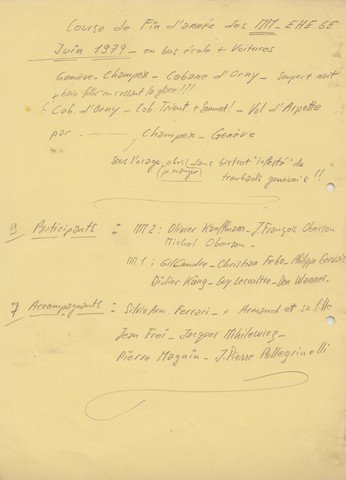 Course de Fin d'année des MM - EHE GE
Juin 1979 - en bus école + Voitures
Genève - Champex - Cabane d'Orny - Souper nuit
bain folki en cassant la glace!!!
Cab. d'Orny - Cab Trient + Sommet! - Val d'Arpette
par Champex - Genève
sous l'orage, abri dans bistrot "infesté" de
(p. manger) troubads genevois !!
9 Participants : MM2 : Olivier Kauffmann - J François Oberson
Michel Oberson -
MM1 : Gil - Christian Febo - Philippe Gervais
Didier Küng - Guy Lecoultre - Wanner -
7 Accompagnants : Silvio Arm. Ferrari - + Armand et sa fille
Jean Frei - Jacques Mihilewicz -
Pierre Maguin - J. Pierre Pellegrinelli